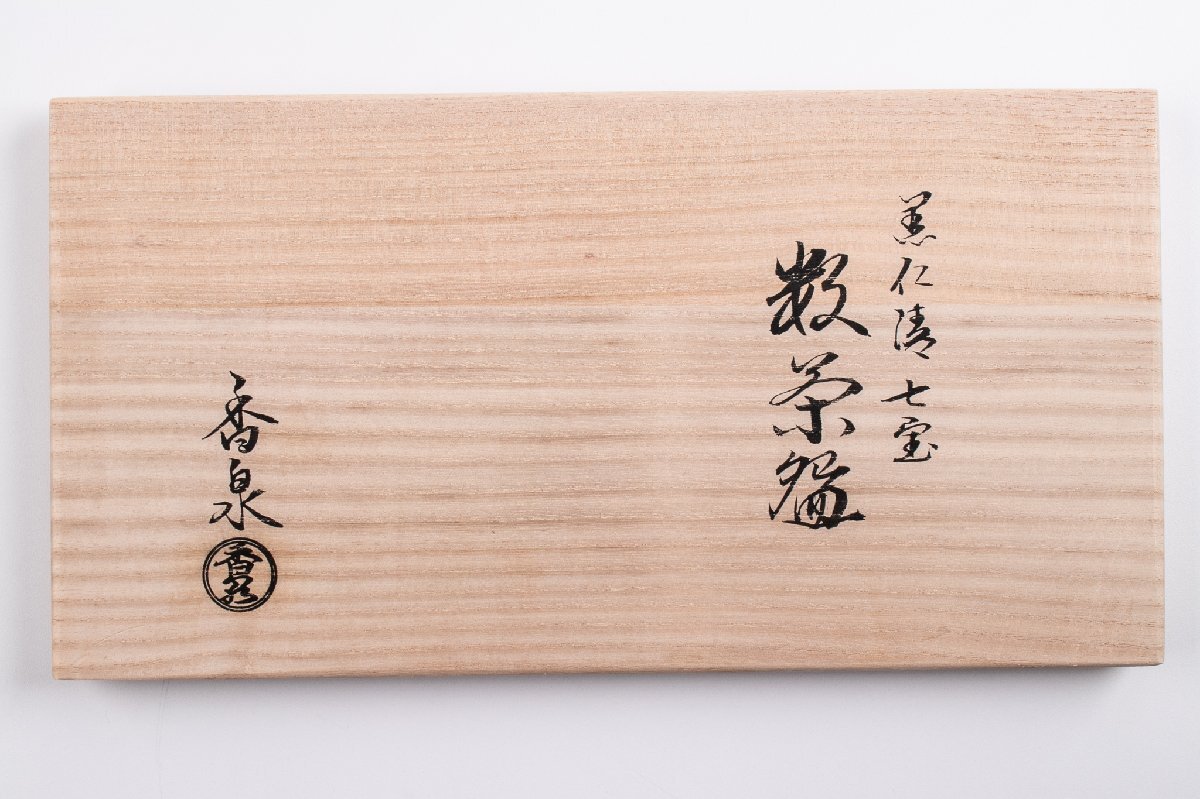 黒仁清七宝
数茶碗
香泉